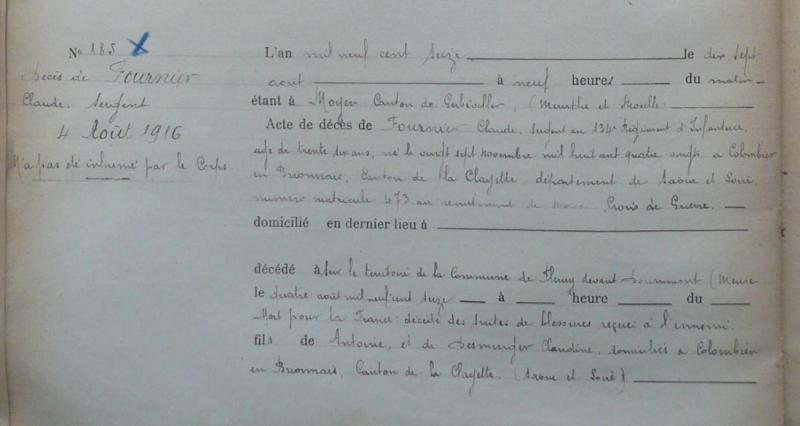 No 185 X
Décès de Fournier
Claude. Sergent
4 Août 1916
N'a pas été inhumé par le Corps.
L'an mil neuf cent seize le dix sept
août à neuf heures du matin
étant à Moyen Canton de Gerbéviller, (Meurthe et Moselle)
Acte de décès de Fournier Claude, sergent au 134e Régiment d'Infanterie,
agé de trente six ans, né le vingt sept novembre mil huit cent quatre vingt à Colombier
en Brionnais, Canton de la Clayette, département de Saône et Loire,
numéro matricule 473 au recrutement de Croix de Guerre.
domicilié en dernier lieu à
décédé à Sur le territoire de la Commune de Fleury devant Douaumont (Meuse
le quatre août mil neuf cent seize à heure du
Mort pour la France : décédé des suites de blessures reçues à l'ennemi.
fils de Antoine, et de Desmurger Claudine, domiciliés à Colombier
en Brionnais, Canton de la Clayette. (Saône et Loire)